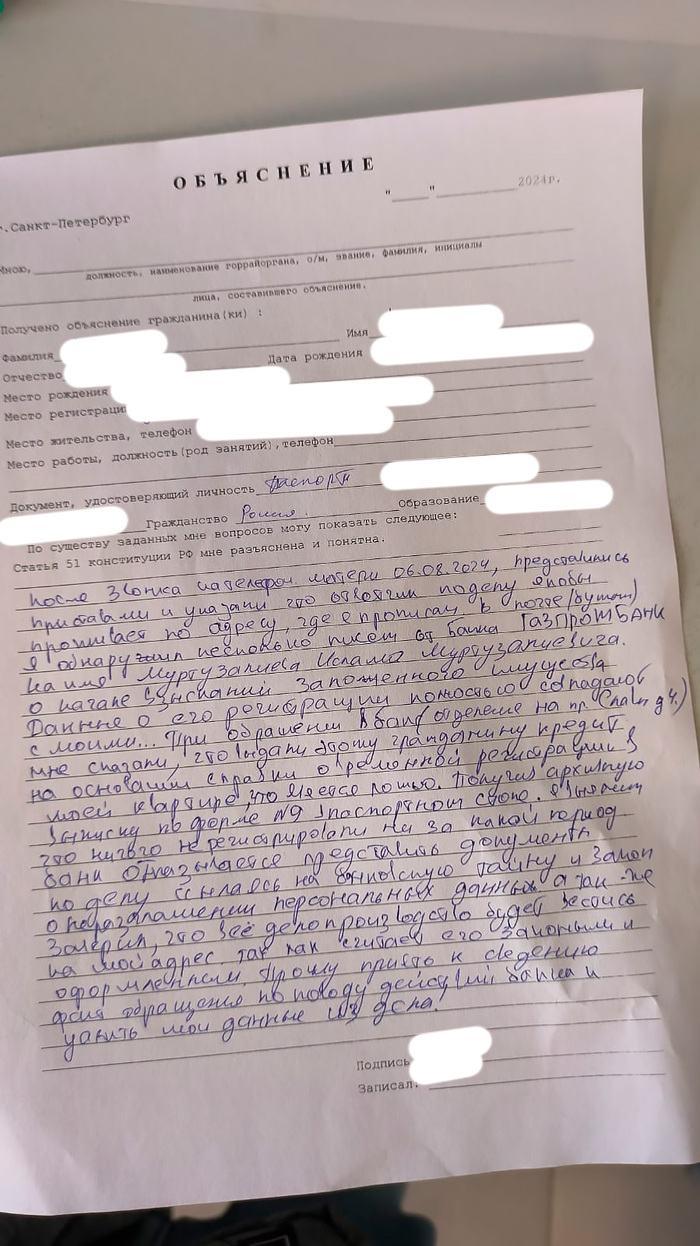 ОБЪЯСНЕНИЕ
"____"__________2024г.
г.Санкт-Петербург
Мною,
должность, наименование горрайоргана, о/м, звание, фамилия, инициалы
лица, составившего объяснение.
Получено объяснение гражданина(ки) :
Фамилия Имя
Отчество Дата рождения
Место рождения
Место регистраци
Место жительства, телефон
Место работы, должность(род занятий),телефон
Документ, удостоверяющий личность паспорт
Гражданство Россия. Образование
По существу заданных мне вопросов могу показать следующее:
Статья 51 конституции РФ мне разъяснена и понятна.
После звонка на телефон матери 06.08.2024, представились
приставами и указали что ответчик по делу якобы
проживает по адресу, где я прописан, в почте (бумаги)
я обнаружил несколько писем от банка ГАЗПРОМБАНК
на имя Муртузалиева Ислама Муртузалиевича.
о начале взыскания заложенного имущества
Данные о его регистрации полностью совпадают
с моими... При обращении в банк (отделение на пр. Славы д 4.)
мне сказали, что выдали этому гражданину кредит
на основании справки о временной регистрации в
моей квартире, что является ложью. Получил архивную
выписку по форме №9 в паспортном столе. Я выяснил
что никого не регистрировали ни за какой период
банк отказывается представить документы
по делу ссылаясь на банковскую тайну и Закон
о неразглашении персональных данных, а так-же
заверил, что всё делопроизводство будет вестись
на мой адрес, так как считает его законным и
оформленным. Прошу принять к сведению
факт обращения по поводу действий банка и
удалить мои данные из дела.
Подпись
Записал: